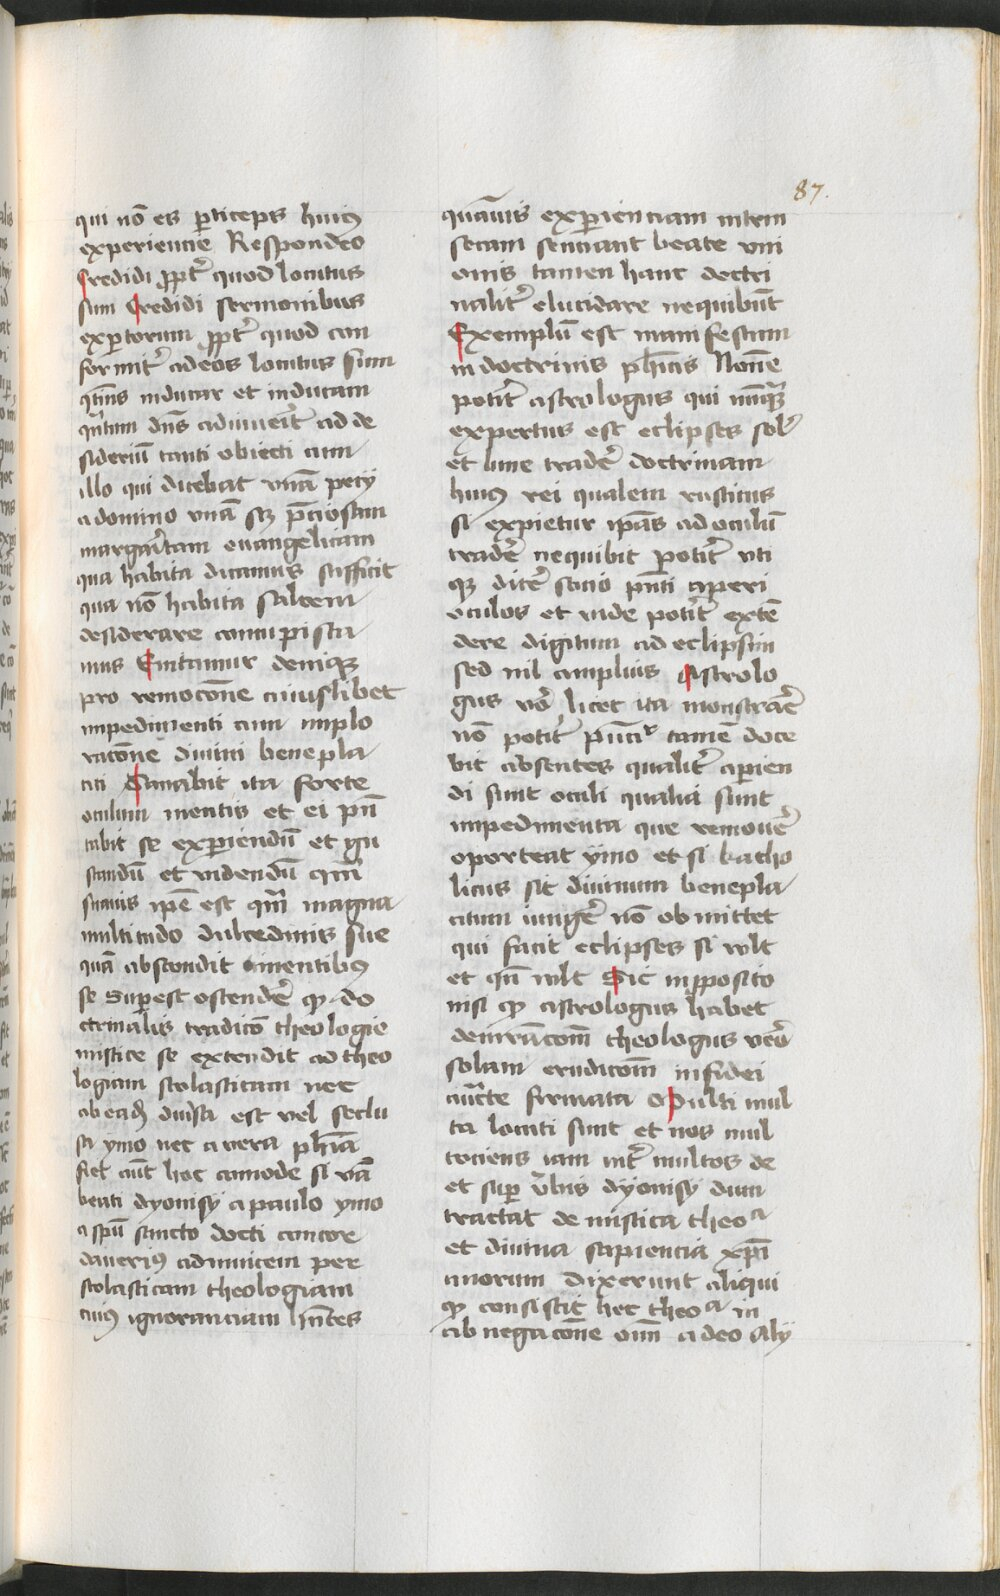 87.
qui nō es pticeps huiꝰ
experiencie Respondeo
Credidi ꝓpt̄ quod locutus
sum Credidi sermonibus
exptorum ꝓpt̄ quod con
formit̄ ad eos locutus sum
inducar et inducam
dn̄s ad de
sideriū tanti obiecti cum
illo qui dicebat vnā pecij
a domino vnā scꝫ p̄ciosam
margaritam euangelicam
qua habita dicamus sufficit
qua nō habita saltem
desiderare concupisca
mus Emtamur deniqꝫ
pro remocōne cuiuslibet
impedimenti cum implo
racōne diuini benepla
citi Sanabit ita forte
oculum mentis et ei pn̄
tabit se expiendū et gu
standū et videndū qm̄
suauis ipē est qm̄ magna
multitudo dulcedinis sue
quā abscondit timentibꝰ
se Superest ostendē̄ ꝙ do
ctrinalis tradicō theologie
mistice se extendit ad theo
logiam scolasticam nec
ab eadꝫ diuisa est vel seclu
sa ymo nec a vera ph̄ia
fiet aūt hoc comode si viā
beati dyonisij a paulo ymo
a spū sancto docti concor
dauerimꝰ adinuicem per
scolasticam theologiam
cuiꝰ ignoranciam hn̄tes
quāuis experienciam intrin
secam senciant beate vni
onis tamen hanc doctri
nalit̄ elucidare nequibūt
Exemplū est manifestum
in doctrinis ph̄icis Nonne
potit̄ astrologus qui nūqꝫ
expertus est eclipses sol̄
et lune tradē̄ doctrinam
huiꝰ rei qualem rusticus
si expietur ip̄as ad oculū
tradē̄ nequibit potit̄ vti
qꝫ dicē̄ socio pn̄ti aperi
oculos et vide potit̄ extē
dere digitum ad eclipsim
sed nil amplius Astrolo
gus vō licet ita monstrar̄e
nō potit̄ tamē doce
bit absentes qualit̄ aperien
di sunt oculi qualia sunt
impedimenta que remouē̄
oporteat ymo et si katho
licus sit diuinum benepla
citum iungē̄ nō obmittet
qui facit eclipses si vult
et qn̄ vult Sic in ꝓposito
nisi ꝙ astrologus habet
demrācōm theologus vero
solam erudicōm in fidei
aūcte firmata Multi mul
ta locuti sunt et nos mul
tociens iam int̄ multos de
et sup v̄bis dyonisij dum
tractat de mistica theoᵃ
et diuina sapiencia xp̄i
anorum dixerunt aliqui
ꝙ consistit hec theoᵃ in
ab negacōne om̄i a deo Alij